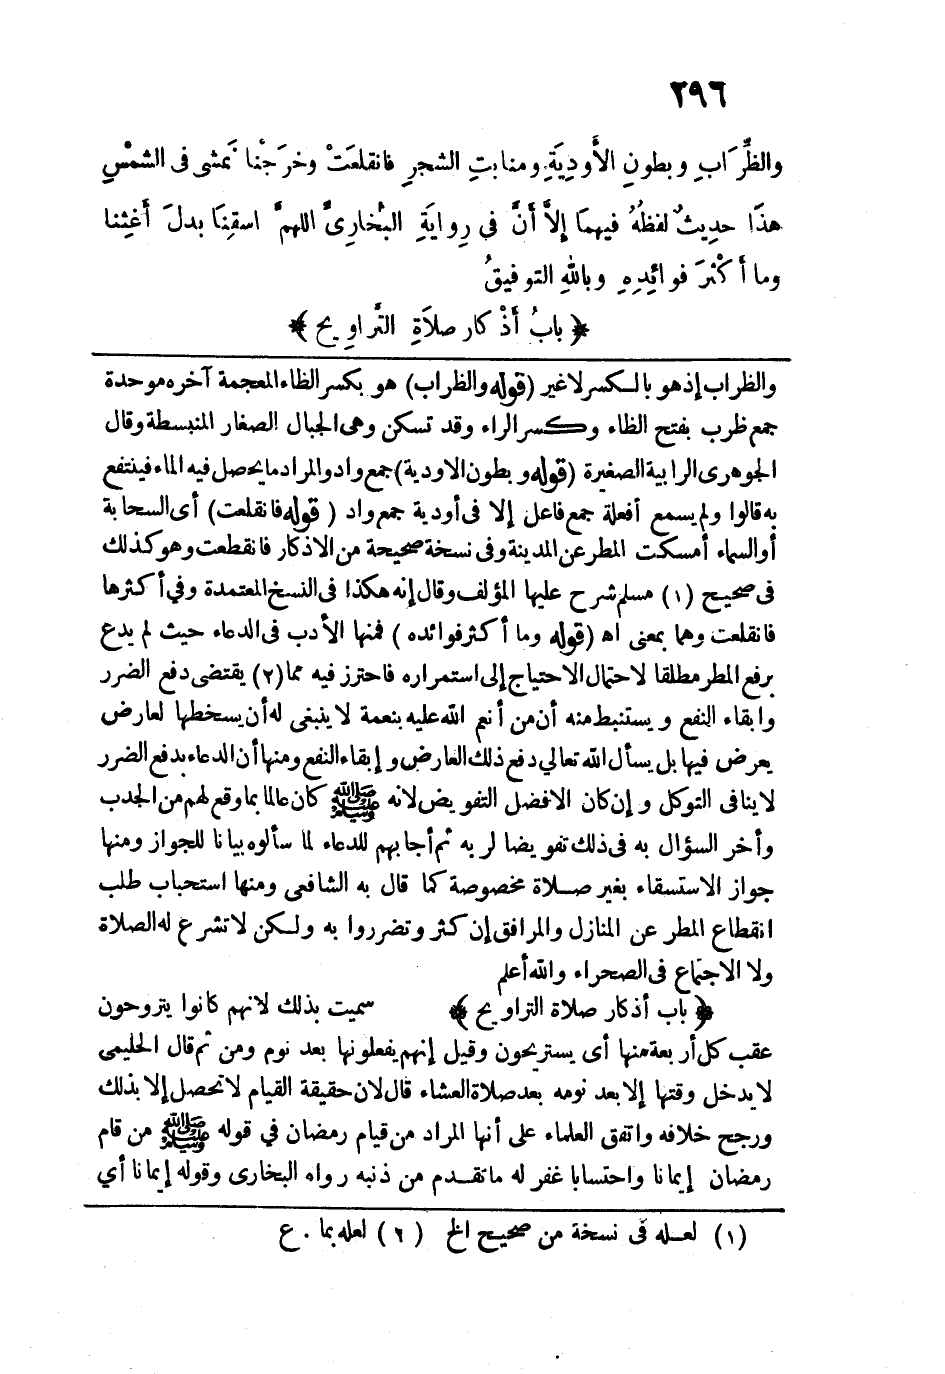 ٢٩٦
والظِّرَابِ وبطونِ الأَودِيَةِ ومنابتِ الشجرِ فانقلعَتْ وخرَجْنا نَمشى فى الشمْسِ
هذَا حدِيثٌ لفظُهُ فيهمَا إلاَّ أَنَّ فى رِوايَةِ البُخارِىِّ اللهمَّ اسقِنَا بدلَ أَغثِنا
وما أَكْثرَ فوائِدِهِ وباللهِ التوفيقُ
﴿ بابُ أَذْكار صلاَةِ التَّراوِيح ﴾
والظراب إذهو بالكسر لاغير (قوله والظراب) هو بكسر الظاء المعجمة آخره موحدة
جمع ظرب بفتح الظاء وكسر الراء وقد تسكن وهى الجبال الصغار المنبسطة وقال
الجوهرى الرابية الصغيرة (قوله وبطون الاودية) جمع واد والمراد ما يحصل فيه الماء فينتفع
به قالوا ولم يسمع أفعلة جمع فاعل إلا فى أودية جمع واد ( قوله فانقلعت) أى السحابة
أو السماء أمسكت المطر عن المدينة وفى نسخة صحيحة من الاذكار فانقطعت وهو كذلك
فى صحيح (١) مسلم شرح عليها المؤلف وقال إنه هكذا فى النسخ المعتمدة وفي أكثرها
فانقلعت وهما بمعنى اه (قوله وما أكثر فوائده ) فمنها الأدب فى الدعاء حيث لم يدع
برفع المطر مطلقا لاحتمال الاحتياج إلى استمراره فاحترز فيه مما (٢) يقتضى دفع الضرر
وابقاء النفع ويستنبط منه أن من أنعم الله عليه بنعمة لا ينبغى له أن يسخطها لعارض
يعرض فيها بل يسأل الله تعالي دفع ذلك العارض وإبقاء النفع ومنها أن الدعاء بدفع الضرر
لا ينافى التوكل وإن كان الافضل التفويض لانه ﷺ كان عالما بما وقع لهم من الجدب
وأخر السؤال به فى ذلك تفويضا لربه ثم أجابهم للدعاء لما سألوه بيانا للجواز ومنها
جواز الاستسقاء بغير صلاة مخصوصة كما قال به الشافعى ومنها استحباب طلب
انقطاع المطر عن المنازل والمرافق إن كثر وتضرروا به ولكن لا تشرع له الصلاة
ولا الاجتماع فى الصحراء والله أعلم
﴿ باب أذكار صلاة التراويح ﴾ سميت بذلك لانهم كانوا يتروحون
عقب كل أربعة منها أى يستريحون وقيل إنهم يفعلونها بعد نوم ومن ثم قال الحليمى
لا يدخل وقتها إلا بعد نومه بعد صلاة العشاء قال لان حقيقة القيام لا تحصل إلا بذلك
ورجح خلافه واتفق العلماء على أنها المراد من قيام رمضان في قوله ﷺ من قام
رمضان إيمانا واحتسابا غفر له ما تقدم من ذنبه رواه البخارى وقوله إيمانا أي
(١) لعله فى نسخة من صحيح الخ (٢) لعله بما . ع